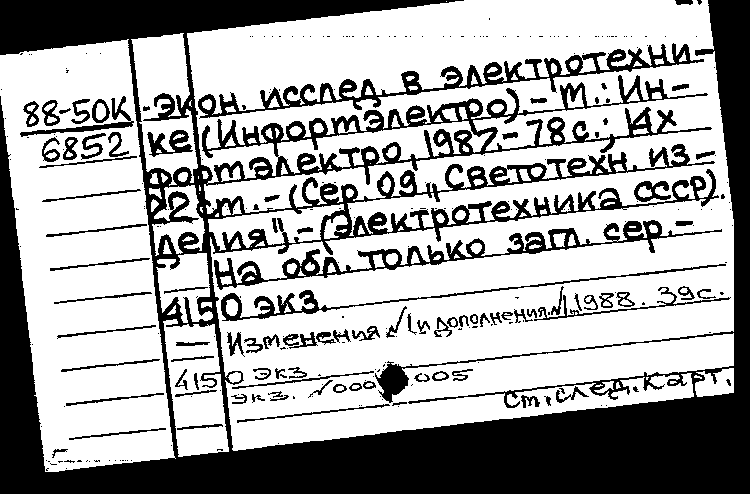 88-50К -экон. исслед. в электротехни-
6852 ке (Информэлектро).- М.: Ин-
формэлектро, 1987.- 78с.; 14х
22 см. - (Сер. 09 „Светотехн. из-
делия").- (Электротехника СССР).
На обл. только загл. сер.-
4150 экз.
— Изменения №1 и дополнения №1, 1988. 39с.
4150 экз.
экз. √000 005
См. след. карт.